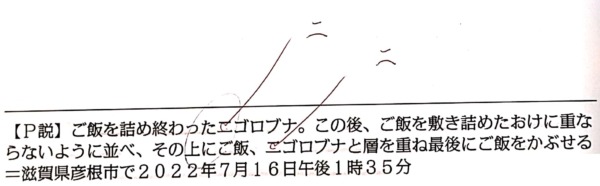 ニ
ニ
【Ｐ説】ご飯を詰め終わったニゴロブナ。この後、ご飯を敷き詰めたおけに重な
らないように並べ、その上にご飯、ニゴロブナと層を重ね最後にご飯をかぶせる
＝滋賀県彦根市で２０２２年７月１６日午後１時３５分